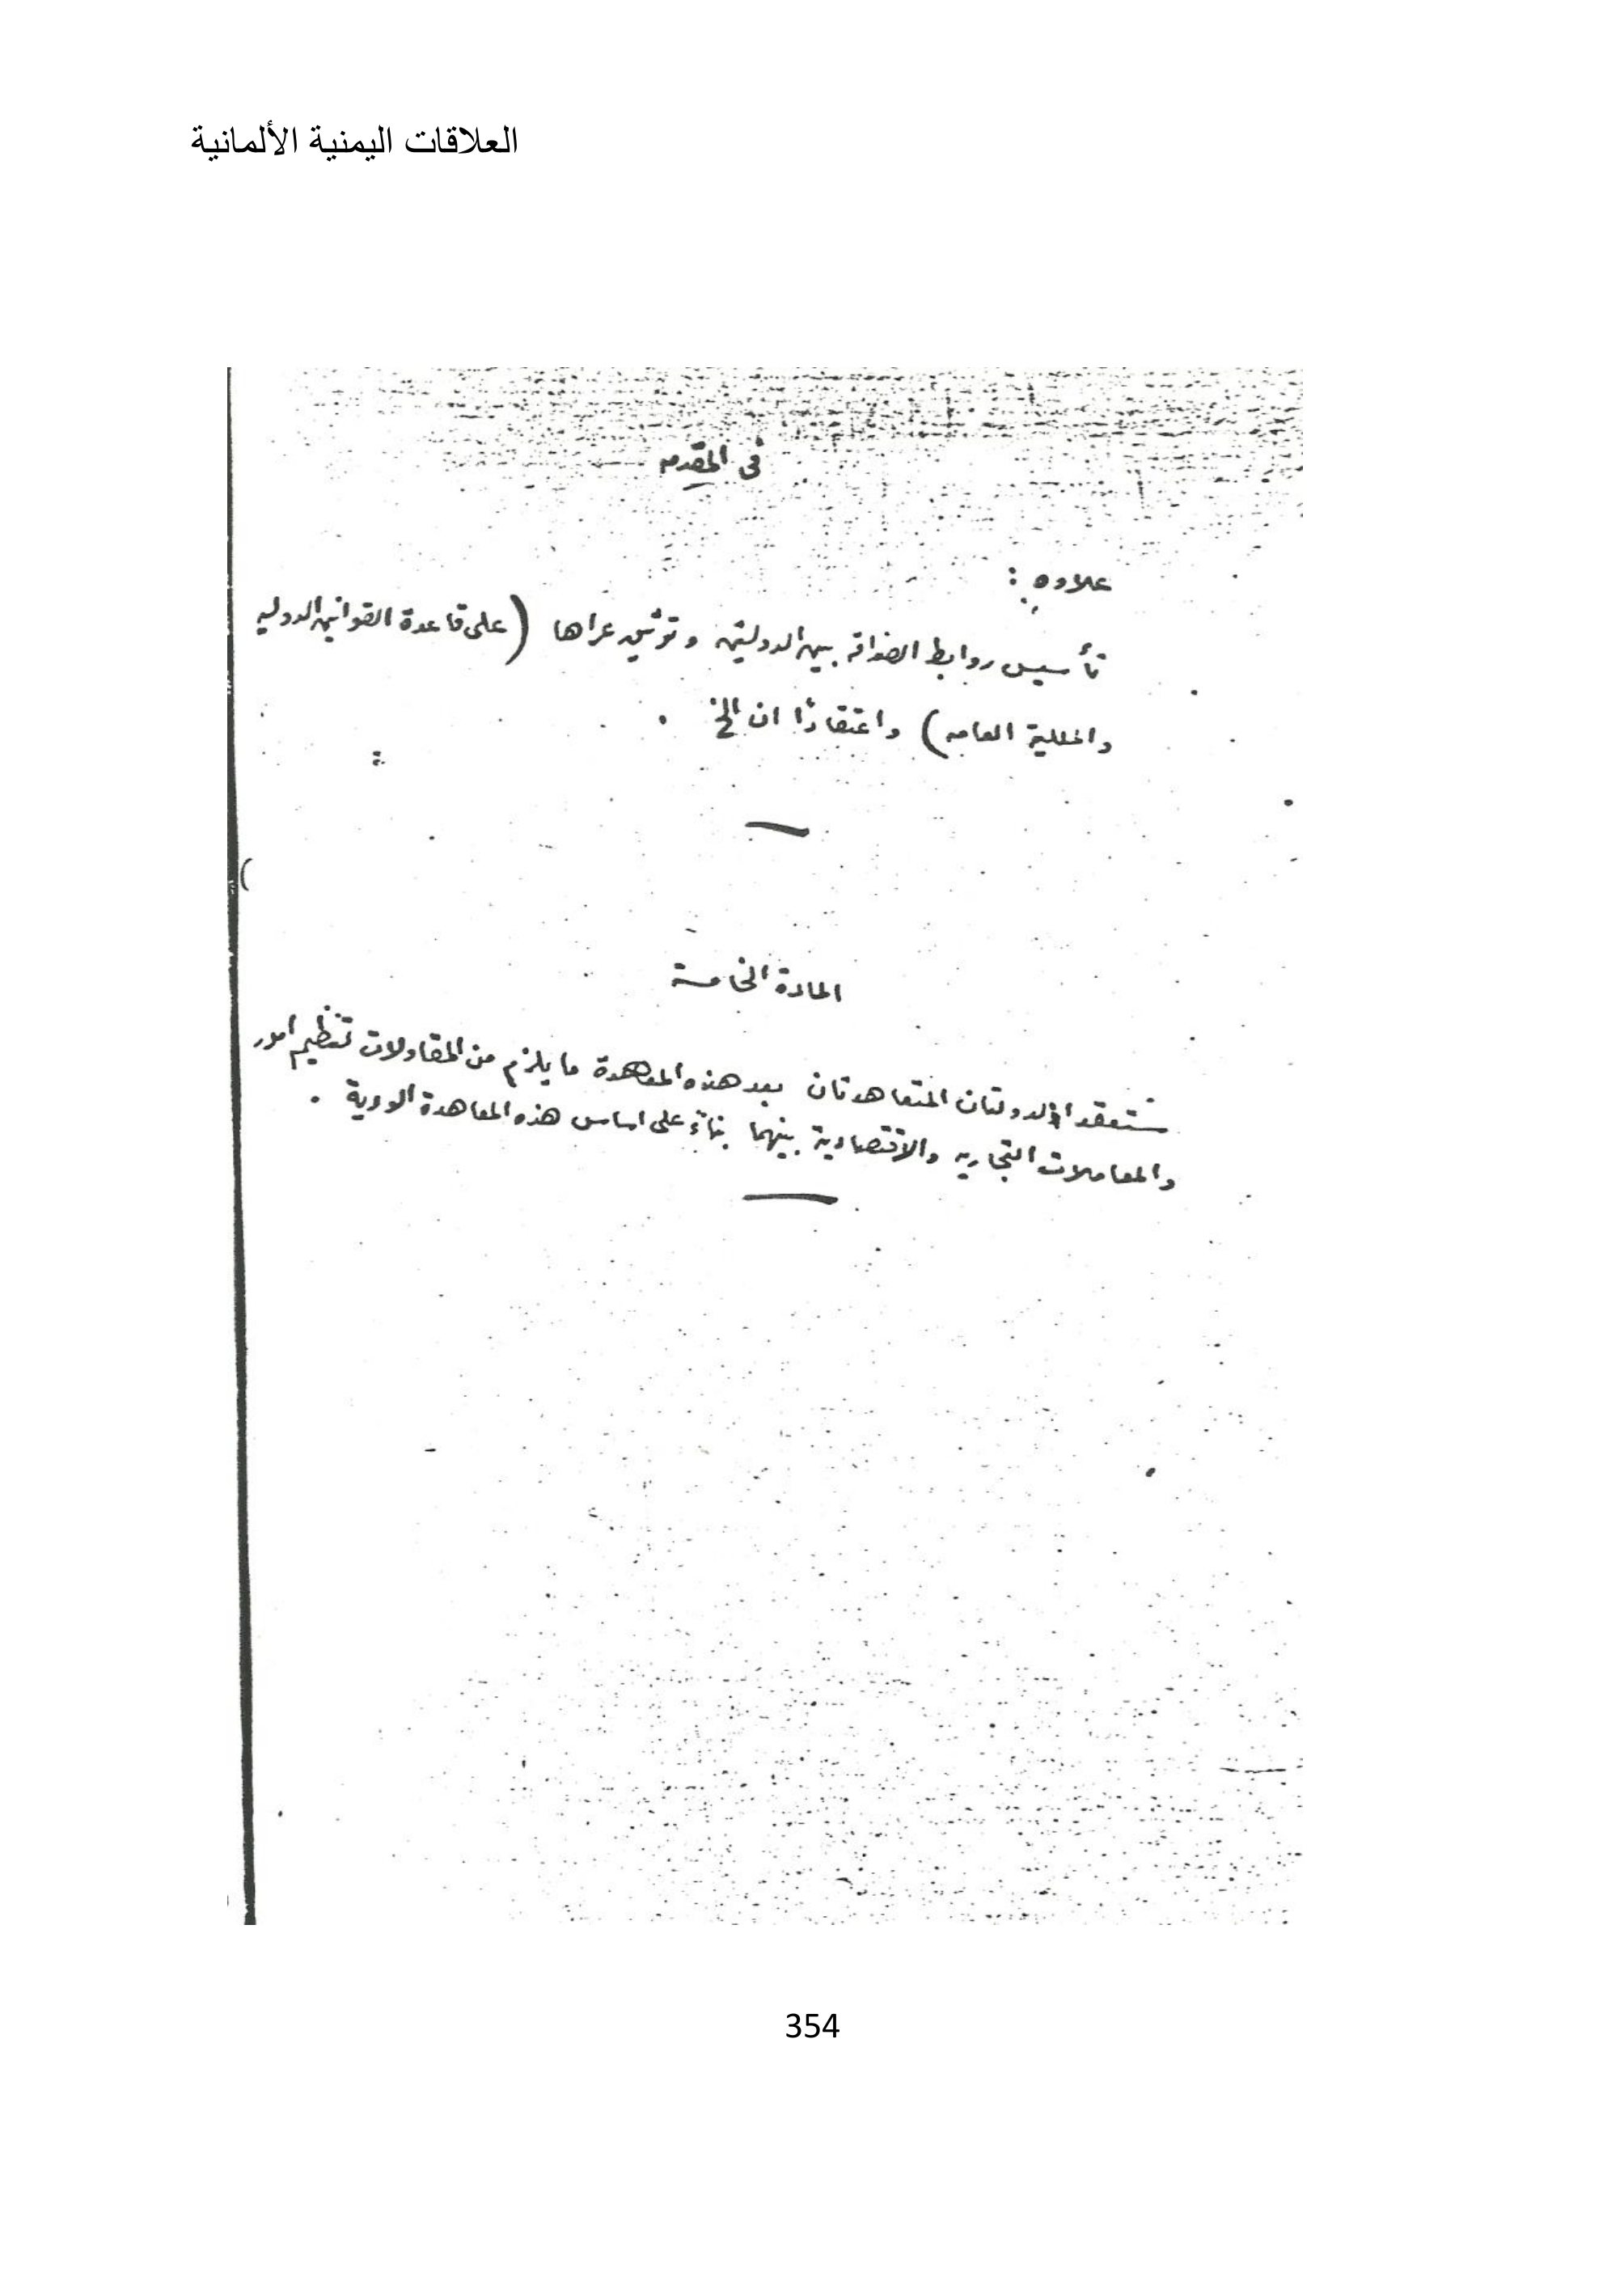 العلاقات اليمنية الألمانية
فى المقدمه
علاوه :
تأسيس روابط الصداقه بين الدولتين و توثيق عراها (على قاعدة القوانين الدوليه
والمللية العامه) واعتقادًا ان الخ .
المادة الخامسة
ستعقد الدولتان المتعاهدتان بعد هذه المعاهدة ما يلزم من المقاولات تنظيم امور
والمعاملات التجاريه والاقتصادية بينهما بناءً على اساس هذه المعاهدة الودية .
354